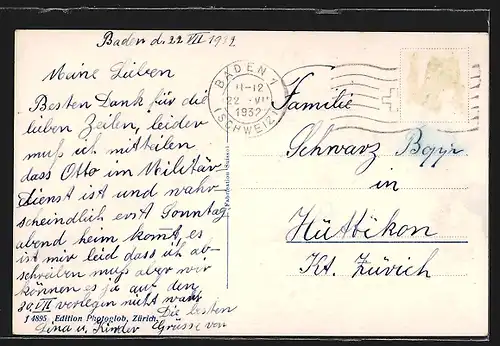 Baden d. 22 VII 1932
Meine Lieben
Besten Dank für die
lieben Zeilen, leider
muß ich mitteilen
dass Otto im Militär-
dienst ist und wahr-
scheindlich erst Sonntag
abend heim komt, es
ist mir leid dass ich ab-
schreiben muß aber wir
können es ja auf den
30. VII verlegen nicht wahr
Die besten
Grüsse von
Lina u. Kinder
J 4895 Edition Photoglob, Zürich.
BADEN 1
11-12
22. VII
1932
(SCHWEIZ)
Familie
Schwarz
in
Hüttikon
Kt. Zürich